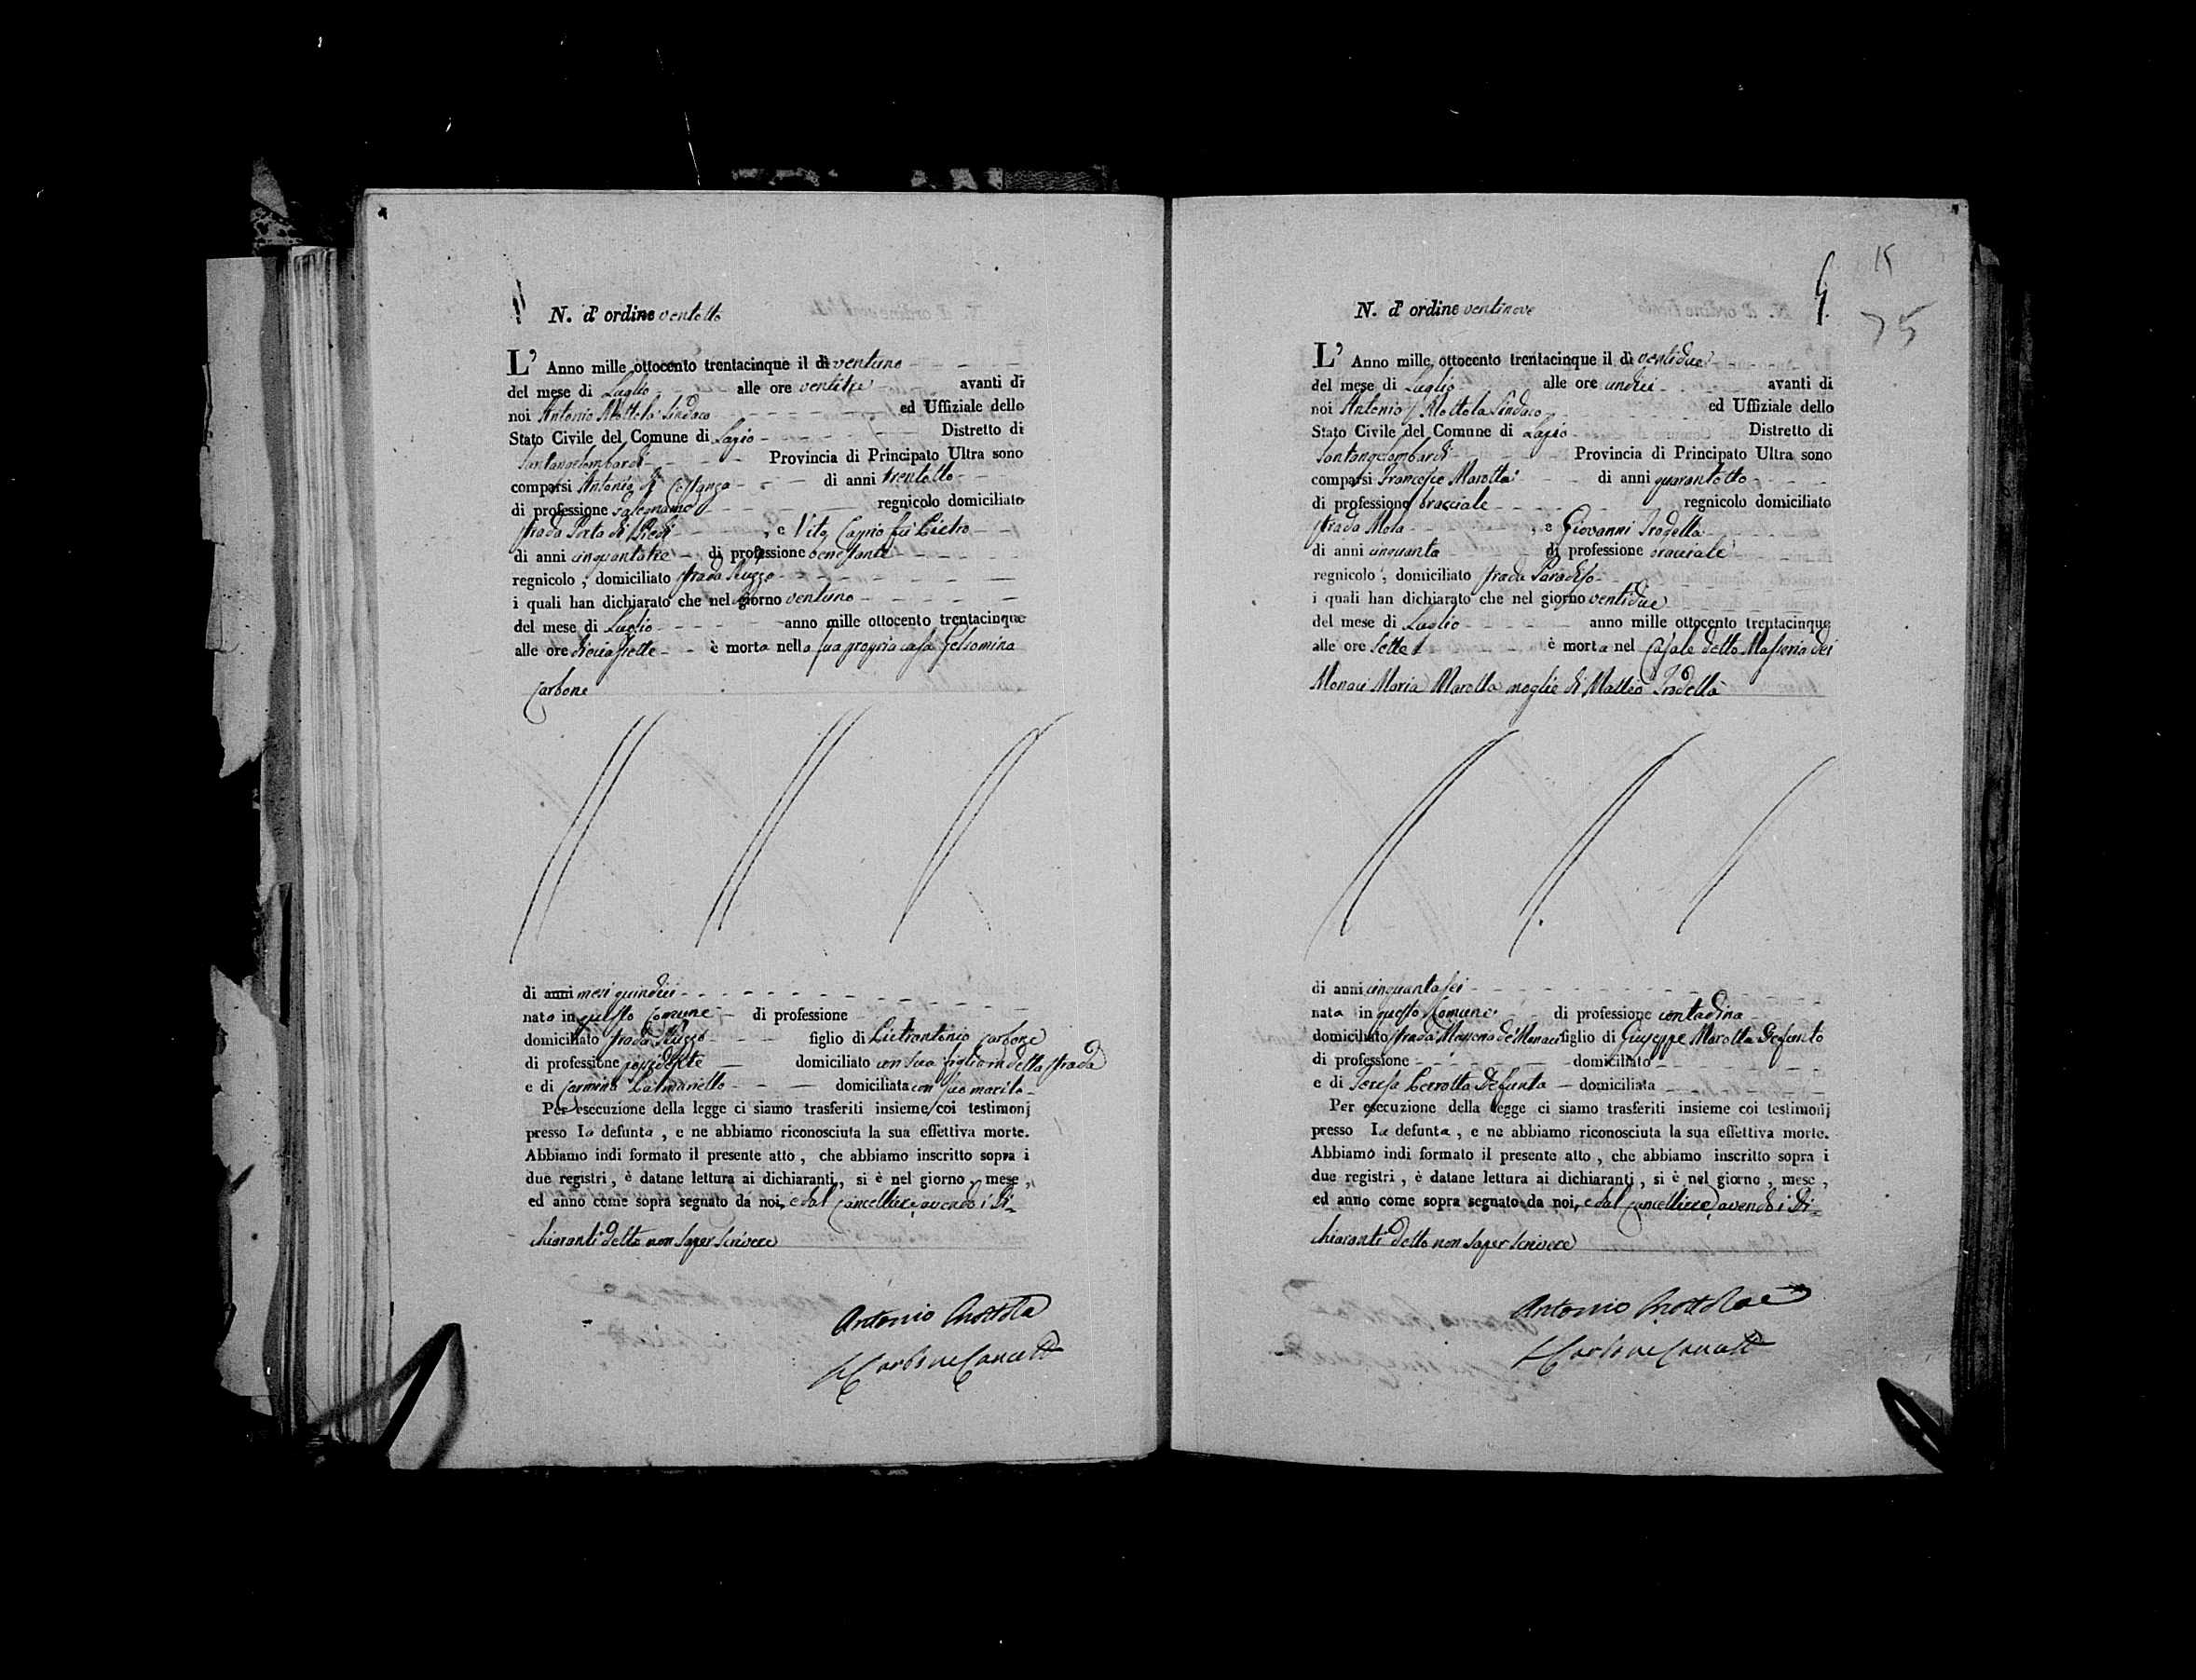 N. d'ordine ventotto
L' Anno mille ottocento trentacinque il dì ventuno
del mese di Luglio alle ore ventitre avanti di
noi Antonio Mottola Sindaco ed Uffiziale dello
Stato Civile del Comune di Lapio Distretto di
Santangelombardi Provincia di Principato Ultra sono
comparsi Antonio di Costanzo di anni trentotto
di professione falegname regnicolo domiciliato
strada Porta di Piedi , e Vito Caprio fu Pietro
di anni cinquantatre di professione benestante
regnicolo , domiciliato strada
i quali han dichiarato che nel giorno ventuno
del mese di Luglio anno mille ottocento trentacinque
alle ore diciassette è morta nella sua propria casa Gelsomina
Carbone
di anni mesi quindici
nata in questo Comune di professione
domiciliato strada figlio di Pietrantonio Carbone
di professione possidente domiciliato con sua figlia in detta strada
e di Carmina domiciliata con suo marito
Per esecuzione della legge ci siamo trasferiti insieme coi testimonj
presso la defunta , e ne abbiamo riconosciuta la sua effettiva morte.
Abbiamo indi formato il presente atto , che abbiamo inscritto sopra i
due registri , è datane lettura ai dichiaranti , si è nel giorno , mese ,
ed anno come sopra segnato da noi, e dal Cancelliere, avendo i di=
chiaranti detto non saper scrivere
Antonio Mottola
Carbone Cancell
15
75
N. d'ordine ventinove
L' Anno mille ottocento trentacinque il dì ventidue
del mese di Luglio alle ore undici avanti di
noi Antonio Mottola Sindaco ed Uffiziale dello
Stato Civile del Comune di Lapio Distretto di
Santangelombardi Provincia di Principato Ultra sono
comparsi Francesco Marotta di anni quarantotto
di professione bracciale regnicolo domiciliato
strada Mola , e Giovanni Trodella
di anni cinquanta di professione bracciale
regnicolo , domiciliato strada Paradiso
i quali han dichiarato che nel giorno ventidue
del mese di Luglio anno mille ottocento trentacinque
alle ore sette è morta nel Casale detto Masseria dei
Monaci Maria Marotta moglie di Matteo Trodella
di anni cinquantasei
nata in questo Comune di professione contadina
domiciliato strada Masseria de' Monaci figlio di Giuseppe Marotta defunto
di professione domiciliato
e di Teresa Perrotta defunta domiciliata
Per esecuzione della legge ci siamo trasferiti insieme coi testimonij
presso la defunta , e ne abbiamo riconosciuta la sua effettiva morte.
Abbiamo indi formato il presente atto , che abbiamo inscritto sopra i
due registri , è datane lettura ai dichiaranti , si è nel giorno , mese ,
ed anno come sopra segnato da noi, e dal Cancelliere, avendo i di=
chiaranti detto non saper scrivere
Antonio Mottola
Carbone Cancell